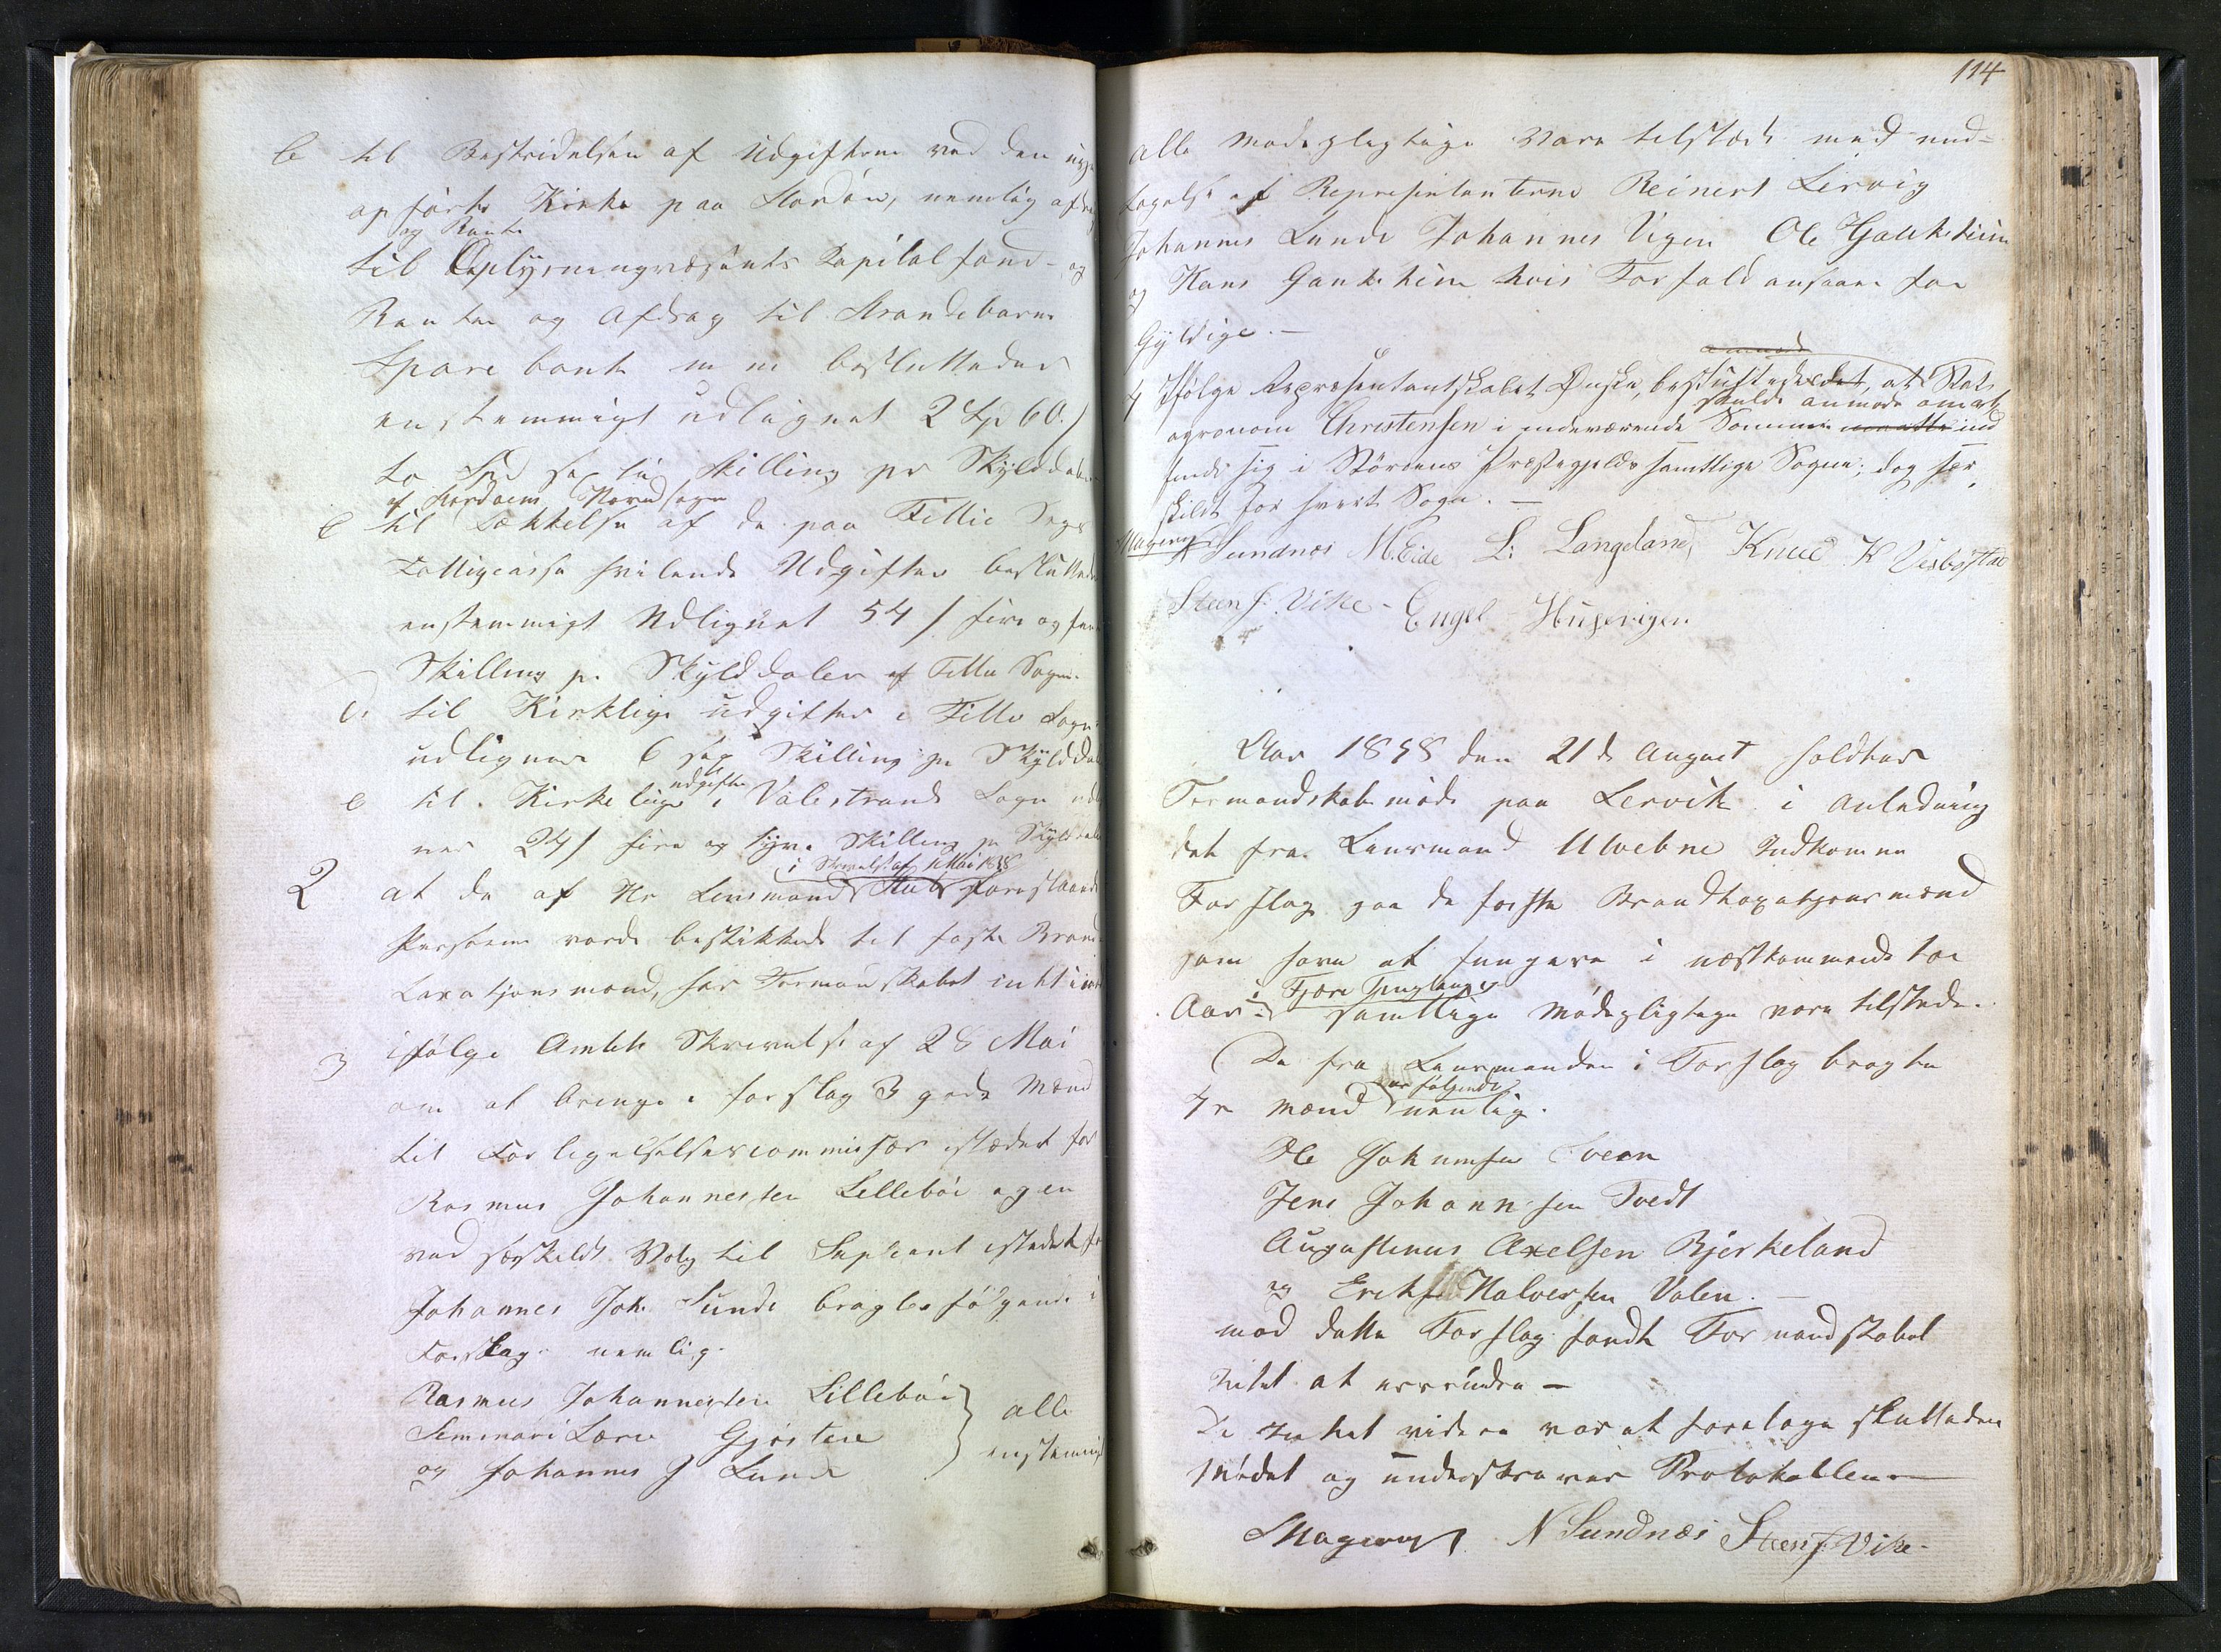 b til Bestridelsen af Udgifterne ved den nye
opførte Kirke paa Stordøen, nemlig afdrag
og Rente
til Oplysningvæsenets Kapitalfond - og
Renter og Afdrag til Strandebarms
Sparebank m m besluttedes
enstemmigt udlignet 2 Sp 60 /
to Spd sexti Skilling pr Skylddaler
af Stordøens Hovedsogn
c til Dækkelse af de paa Fitlie Sogns
Fattigcasse hvilende Udgifter besluttedes
enstemmigt Udlignet 54 / fire og femti
Skilling pr Skylddaler af Fitlie Sogn.
d. til Kirklige udgifter i Fitlie Sogn
udlignes 6 sex Skilling pr Skylddaler
e til Kirkelige udgifter i Valestrands Sogn udlig
nes 24 / fire og tyve Skilling pr Skylddaler
i Skrivelse af 11 Mai 1858
2 at de af Hr Lensmand Stub foreslaaede
Personer vorde beskikkede til faste Brand-
taxationsmænd, har Formandskabet intet imod
3 ifølge Amtets Skrivelse af 28 Mai
om at bringe i forslag 3 gode Mænd
til Forligelsescommissær istedet for
Rasmus Johannessen Lillebøe og en
ved særskildt Valg til Supleant istedet for
Johannes Joh. Lunde bragtes følgende i
Forslag nemlig.
Rasmus Johannessen Lillebøe
Seminari Lærer Gjøsteen
og Johannes J Lunde
alle
enstemmigt
114
alle Mødepligtige Vare tilstæde med und=
tagelse af Repræsentanterne Reinert Lervig
Johannes Lunde Johannes Vigen Ole Gaukeheim
og Hans Gaukeheim hvis Forfald ansaaes for
Gyldige. —
4 Ifølge Repræsentantskabets Ønske, besluttedes det, at Stats
skulde anmode om at
agronom Christensen i indeværende Sommer maatte ind
finde sig i Størdens Præstegjelds samtlige Sogne; dog sær
skildt for hvert Sogn. —
Magerøy N Sundnæs M. Eide L: Langeland, Knud K Vesbøstad
Steen J. Vike - Engel Hugevigen
Aar 1858 den 21de August holdtes
Formandskabsmøde paa Lervik i Anledning
det fra Lensmand Ulvebne Indkomne
Forslag paa de faste Brandtaxationsmænd
som have at fungere i næstkommende to
Aar i Fjære Thinglaug
samtlige Mødepligtige vare tilstede.
De fra Lensmanden i Forslag bragte
4re Mænd var følgende nemlig.
Ole Johannesen Hveen
Jens Johannesen Tvedt
Augustinus Axelsen Bjerkeland
og Erik Halversen Valen. —
mod dette Forslag fandt Formandskabet
Intet at errindre —
Da Intet videre var at foretage sluttedes
Mødet og underskreves Protokollen
Magerøy N Sundnæs Steen J. Vike -